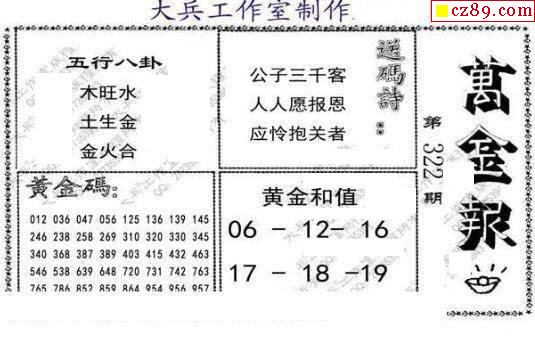 大兵工作室制作
cz89.com
五行八卦
木旺水
土生金
金火合
公子三千客
人人愿报恩
应怜抱关者
送碼詩：
萬金報
第322期
黃金碼:
012 036 047 056 125 136 139 145
246 238 258 269 310 320 330 345
340 368 387 389 403 415 432 463
546 538 639 648 720 731 762 763
765 786 852 859 864 954 956 957
黄金和值
06 - 12- 16
17 - 18 -19